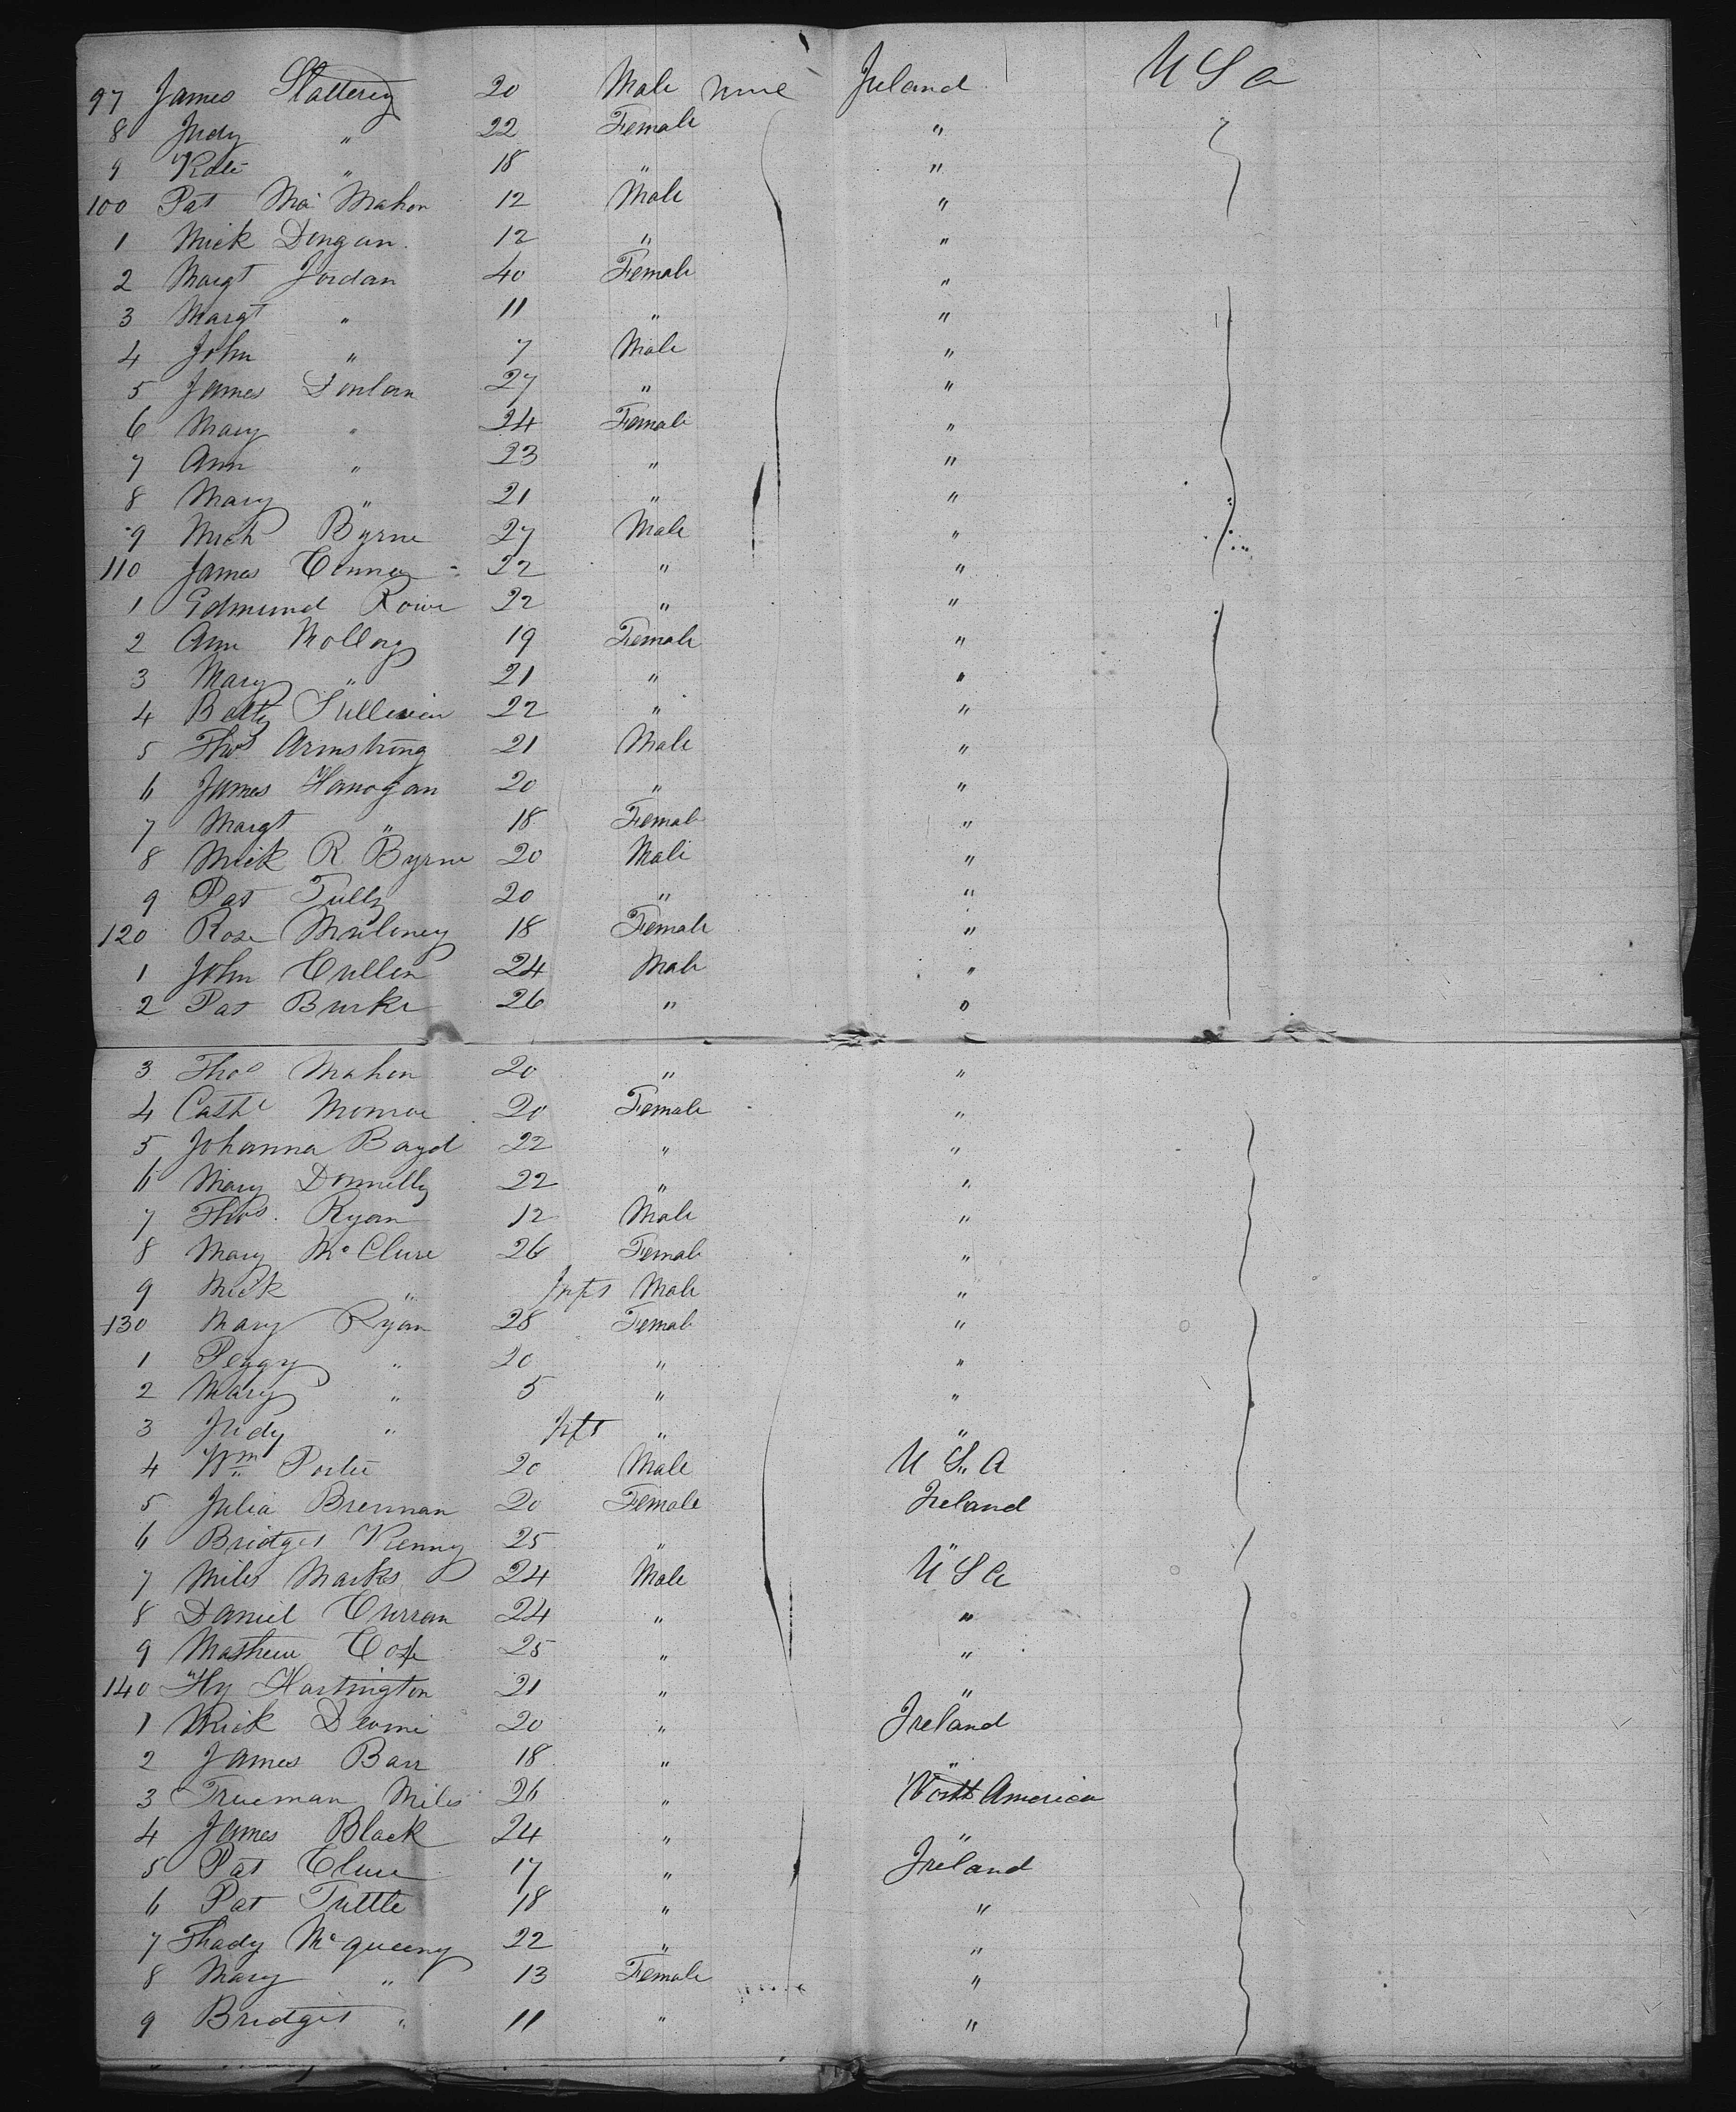 97 James Slattery 20 Male None Ireland U S A
8 Judy " 22 Female "
9 Kate " 18 " "
100 Pat Mc Mahon 12 Male "
1 Mick Dongan 12 " "
2 Margt Jordan 40 Female "
3 Margt " 11 " "
4 John " 7 Male "
5 James Donlan 27 " "
6 Mary " 24 Female "
7 Ann " 23 " "
8 Mary " 21 " "
9 Mich Byrne 27 Male "
110 James 22 " "
1 Edmund Rowe 22 " "
2 Ann Molloy 19 Female "
3 Mary " 21 " "
4 Betty Sullivan 22 " "
5 Thos Armstrong 21 Male "
6 James Hanogan 20 " "
7 Margt " 18 Female "
8 Mick R Byrne 20 Male "
9 Pat Tully 20 " "
120 Rose Muloney 18 Female "
1 John Cullen 24 Male "
2 Pat Burke 26 " "
3 Thos Mahon 20 " "
4 Cathe Monroe 20 Female "
5 Johanna Bayd 22 " "
6 Mary Donnelly 22 " "
7 Thos. Ryan 12 Male "
8 Mary Mc Clure 26 Female "
9 Mick " Infts Male "
130 Mary Ryan 28 Female "
1 Peggy " 20 " "
2 Mary " 5 " "
3 Judy " Infts " "
4 Wm Porter 20 Male U S. A
5 Julia Brennan 20 Female Ireland
6 Bridget Kenny 25 " "
7 Miles Marks 24 Male U S A
8 Daniel Curran 24 " "
9 Mathew 25 " "
140 Hy Hartington 21 " "
1 Mick 20 " Ireland
2 James Barr 18 " "
3 Trueman Miles 26 " North America
4 James Black 24 " "
5 Pat Clure 17 " Ireland
6 Pat Tuttle 18 " "
7 Thady Mc queeny 22 " "
8 Mary " 13 Female "
9 Bridget " 11 " "